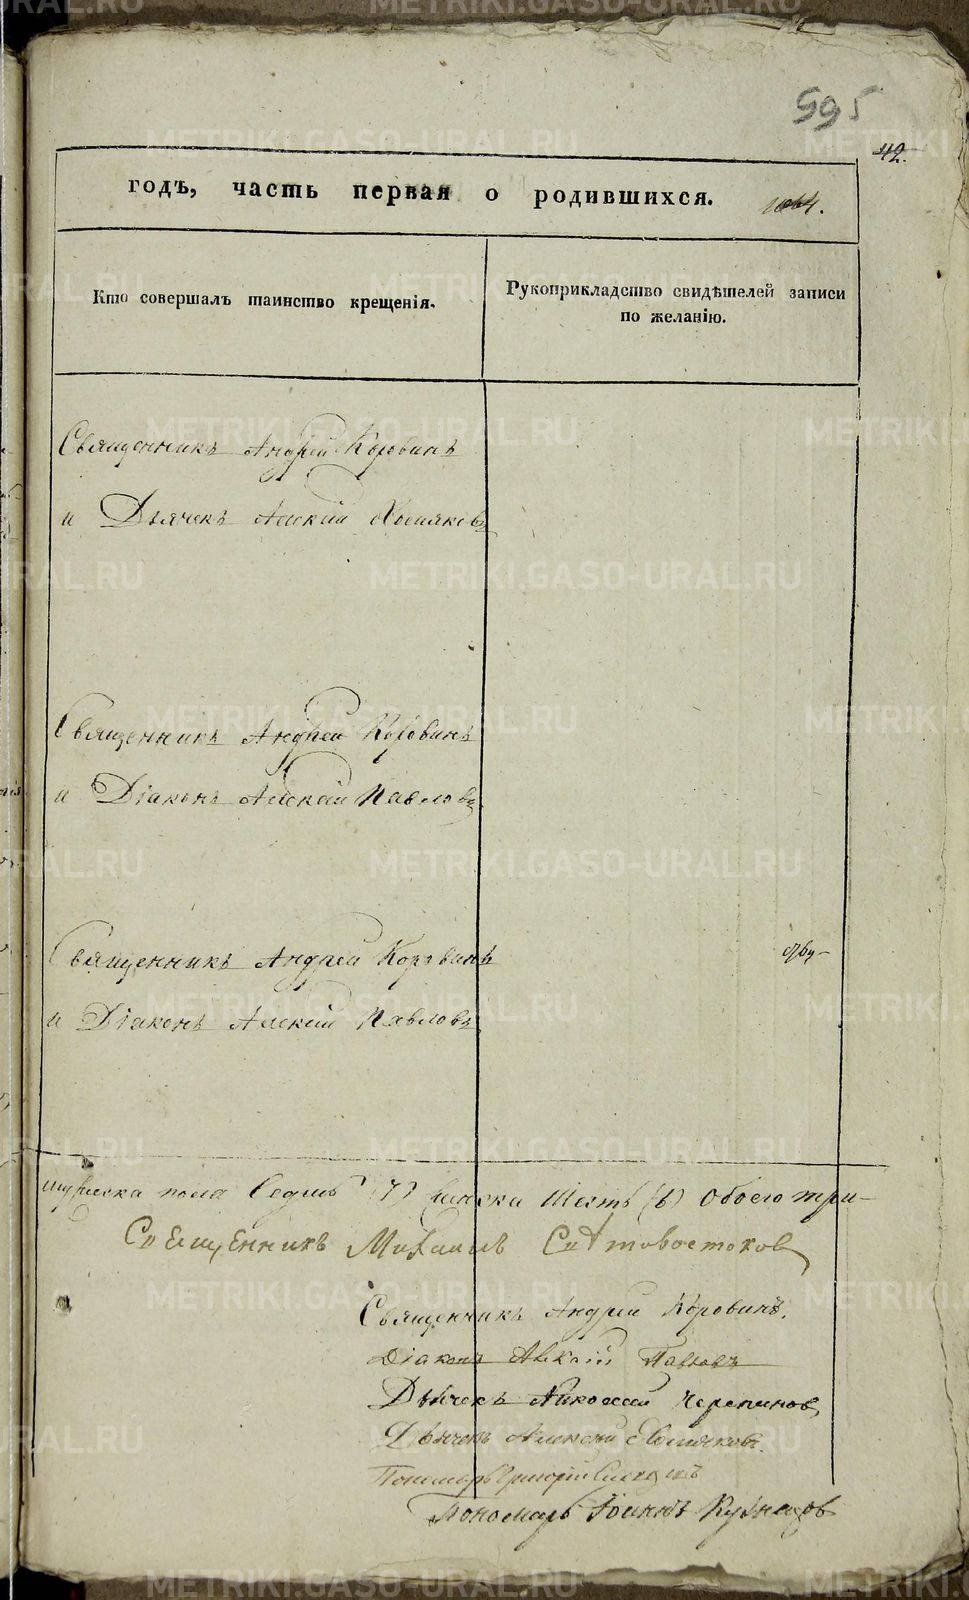 595
42.
годъ, часть первая о родившихся.
Кто совершалъ таинство крещенія.
Рукоприкладство свидѣтелей записи
по желанію.
Священникъ Андрей Коровинъ
и Дьячекъ Алексій Хомяковъ
Священникъ Андрей Коровинъ
и Діаконъ Алексій Павловъ
Священникъ Андрей Коровинъ
и Діаконъ Алексій Павловъ
мужеска пола Седмь (7) женска Шесть (6) Обоего три-
Священникъ Михаилъ
Священникъ Андрей Коровинъ.
Діаконъ Алексій Павловъ
Дьячекъ Николай Черепановъ
Дьячекъ Алексей Хомяковъ.
Пономарь Григорій
Пономарь Іоаннъ Кузнецов
METRIKI.GASO-URAL.RU